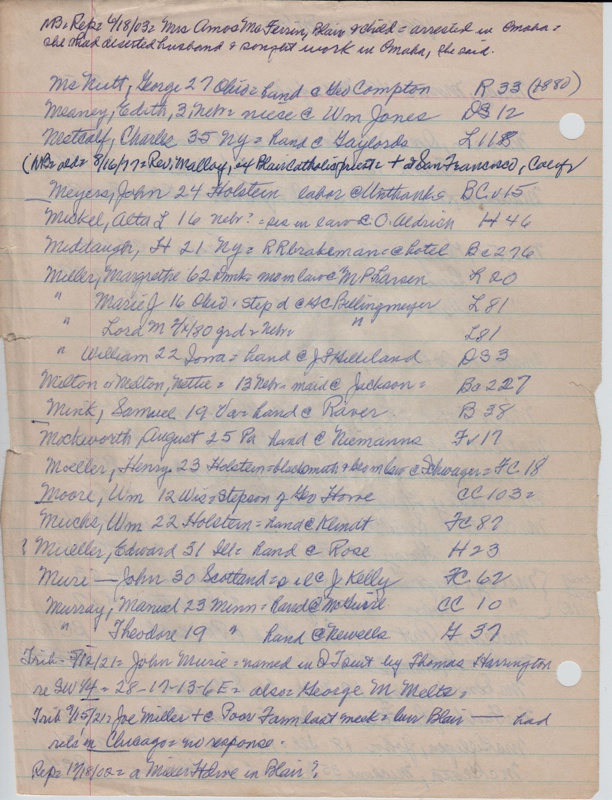 NB. Rep= 4/18/03= Mrs Amos McFerrin, Blair & child = arrested in Omaha =
she had deserted husband & sought work in Omaha, she said.
Mc Nutt, George 27 Ohio= hand c Geo Compton R 33 (1880)
Meaney, Edith, 3, Nebr= niece c Wm Jones DS 12
Metcalf, Charles 35 NY= hand c Gaylords L 118
(NB= 8/16/77= Rev. Malloy, ex Blair Catholic priest + San Francisco, Calif
Meyers, John 24 Holstein labor c Unthanks BC v 15
Mickel, Alta L 16 Nebr?= sis in law c O. Aldrich H 46
Middaugh, H 21 NY= RR brakeman= c hotel Ba 276
Miller, Margrethe 62 Dmk= mom law c M P Larsen R 20
" Marie J 16 Ohio= step d c Billingmeyer L 81
" Lora M 2/12/80 grd= Nebr= " L 81
" William 22 Iowa= hand c J S Hilleland D 33
Milton or Melton, Nettie= 13 Nebr= maid c Jackson= Ba 227
Mink, Samuel 19 Va= hand c Raver B 38
Mockworth, August 25 Pa hand c Niemanns Fv 17
Moeller, Henry 23 Holstein= blacksmith & bro in law c Schwager= FC 18
Moore, Wm 12 Wis= stepson of Geo Howe CC 103=
Mucks, Wm 22 Holstein= hand c Klindt FC 87
? Mueller, Edward 31 Ill= hand c Rose H 23
Muri — John 30 Scotland= c J Kelly FC 62
Murray, Manuel 23 Minn= hand c McGuire CC 10
" Theodore 19 " hand c Newells G 37
Trib= 7/12/21= John Murie= named in QT suit by Thomas Harrington
re SW 1/4= 28-17-13-6E= also= George M Meltz=
Trib 9/15/21= Joe Miller + c Poor Farm last week= bur Blair — had
rels in Chicago= no response.
Rep= 12/18/02= a Miller Home in Blair?